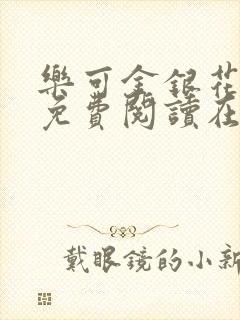 樂可金銀花
免費閱讀在
戴眼鏡的小新